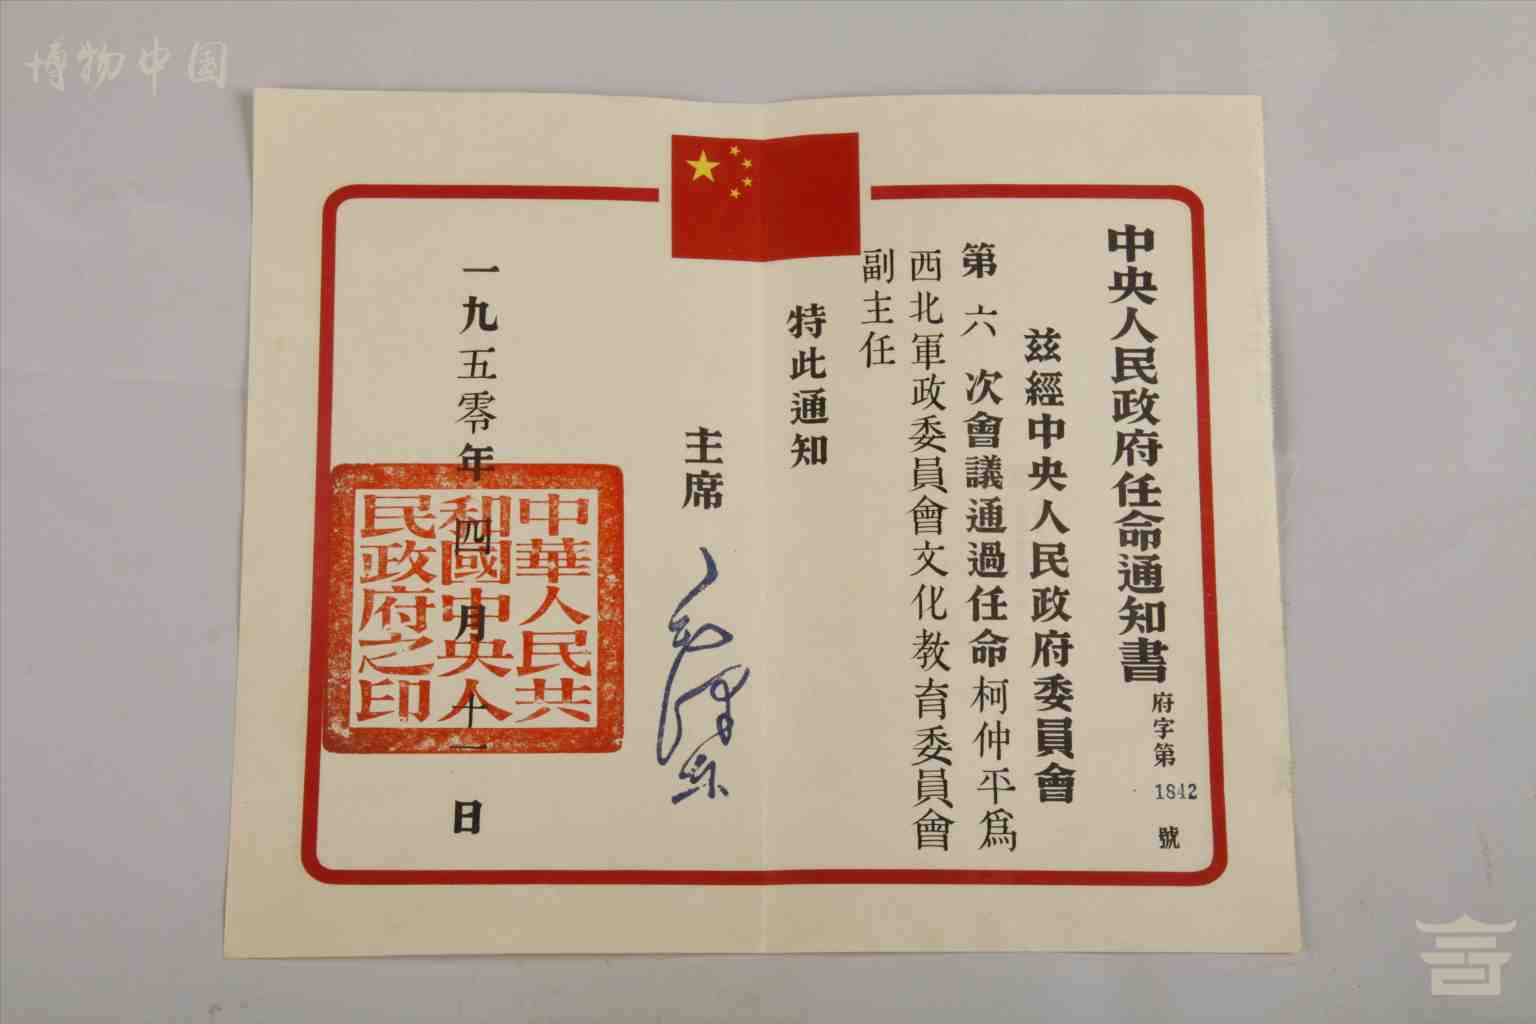 博物中国
中央人民政府任命通知書
府字第1842號
茲經中央人民政府委員會
第六次會議通過任命柯仲平爲
西北軍政委員會文化教育委員會
副主任
特此通知
主席 毛澤東
一九五零年四月十一日
中華人民共
和國中央人
民政府之印